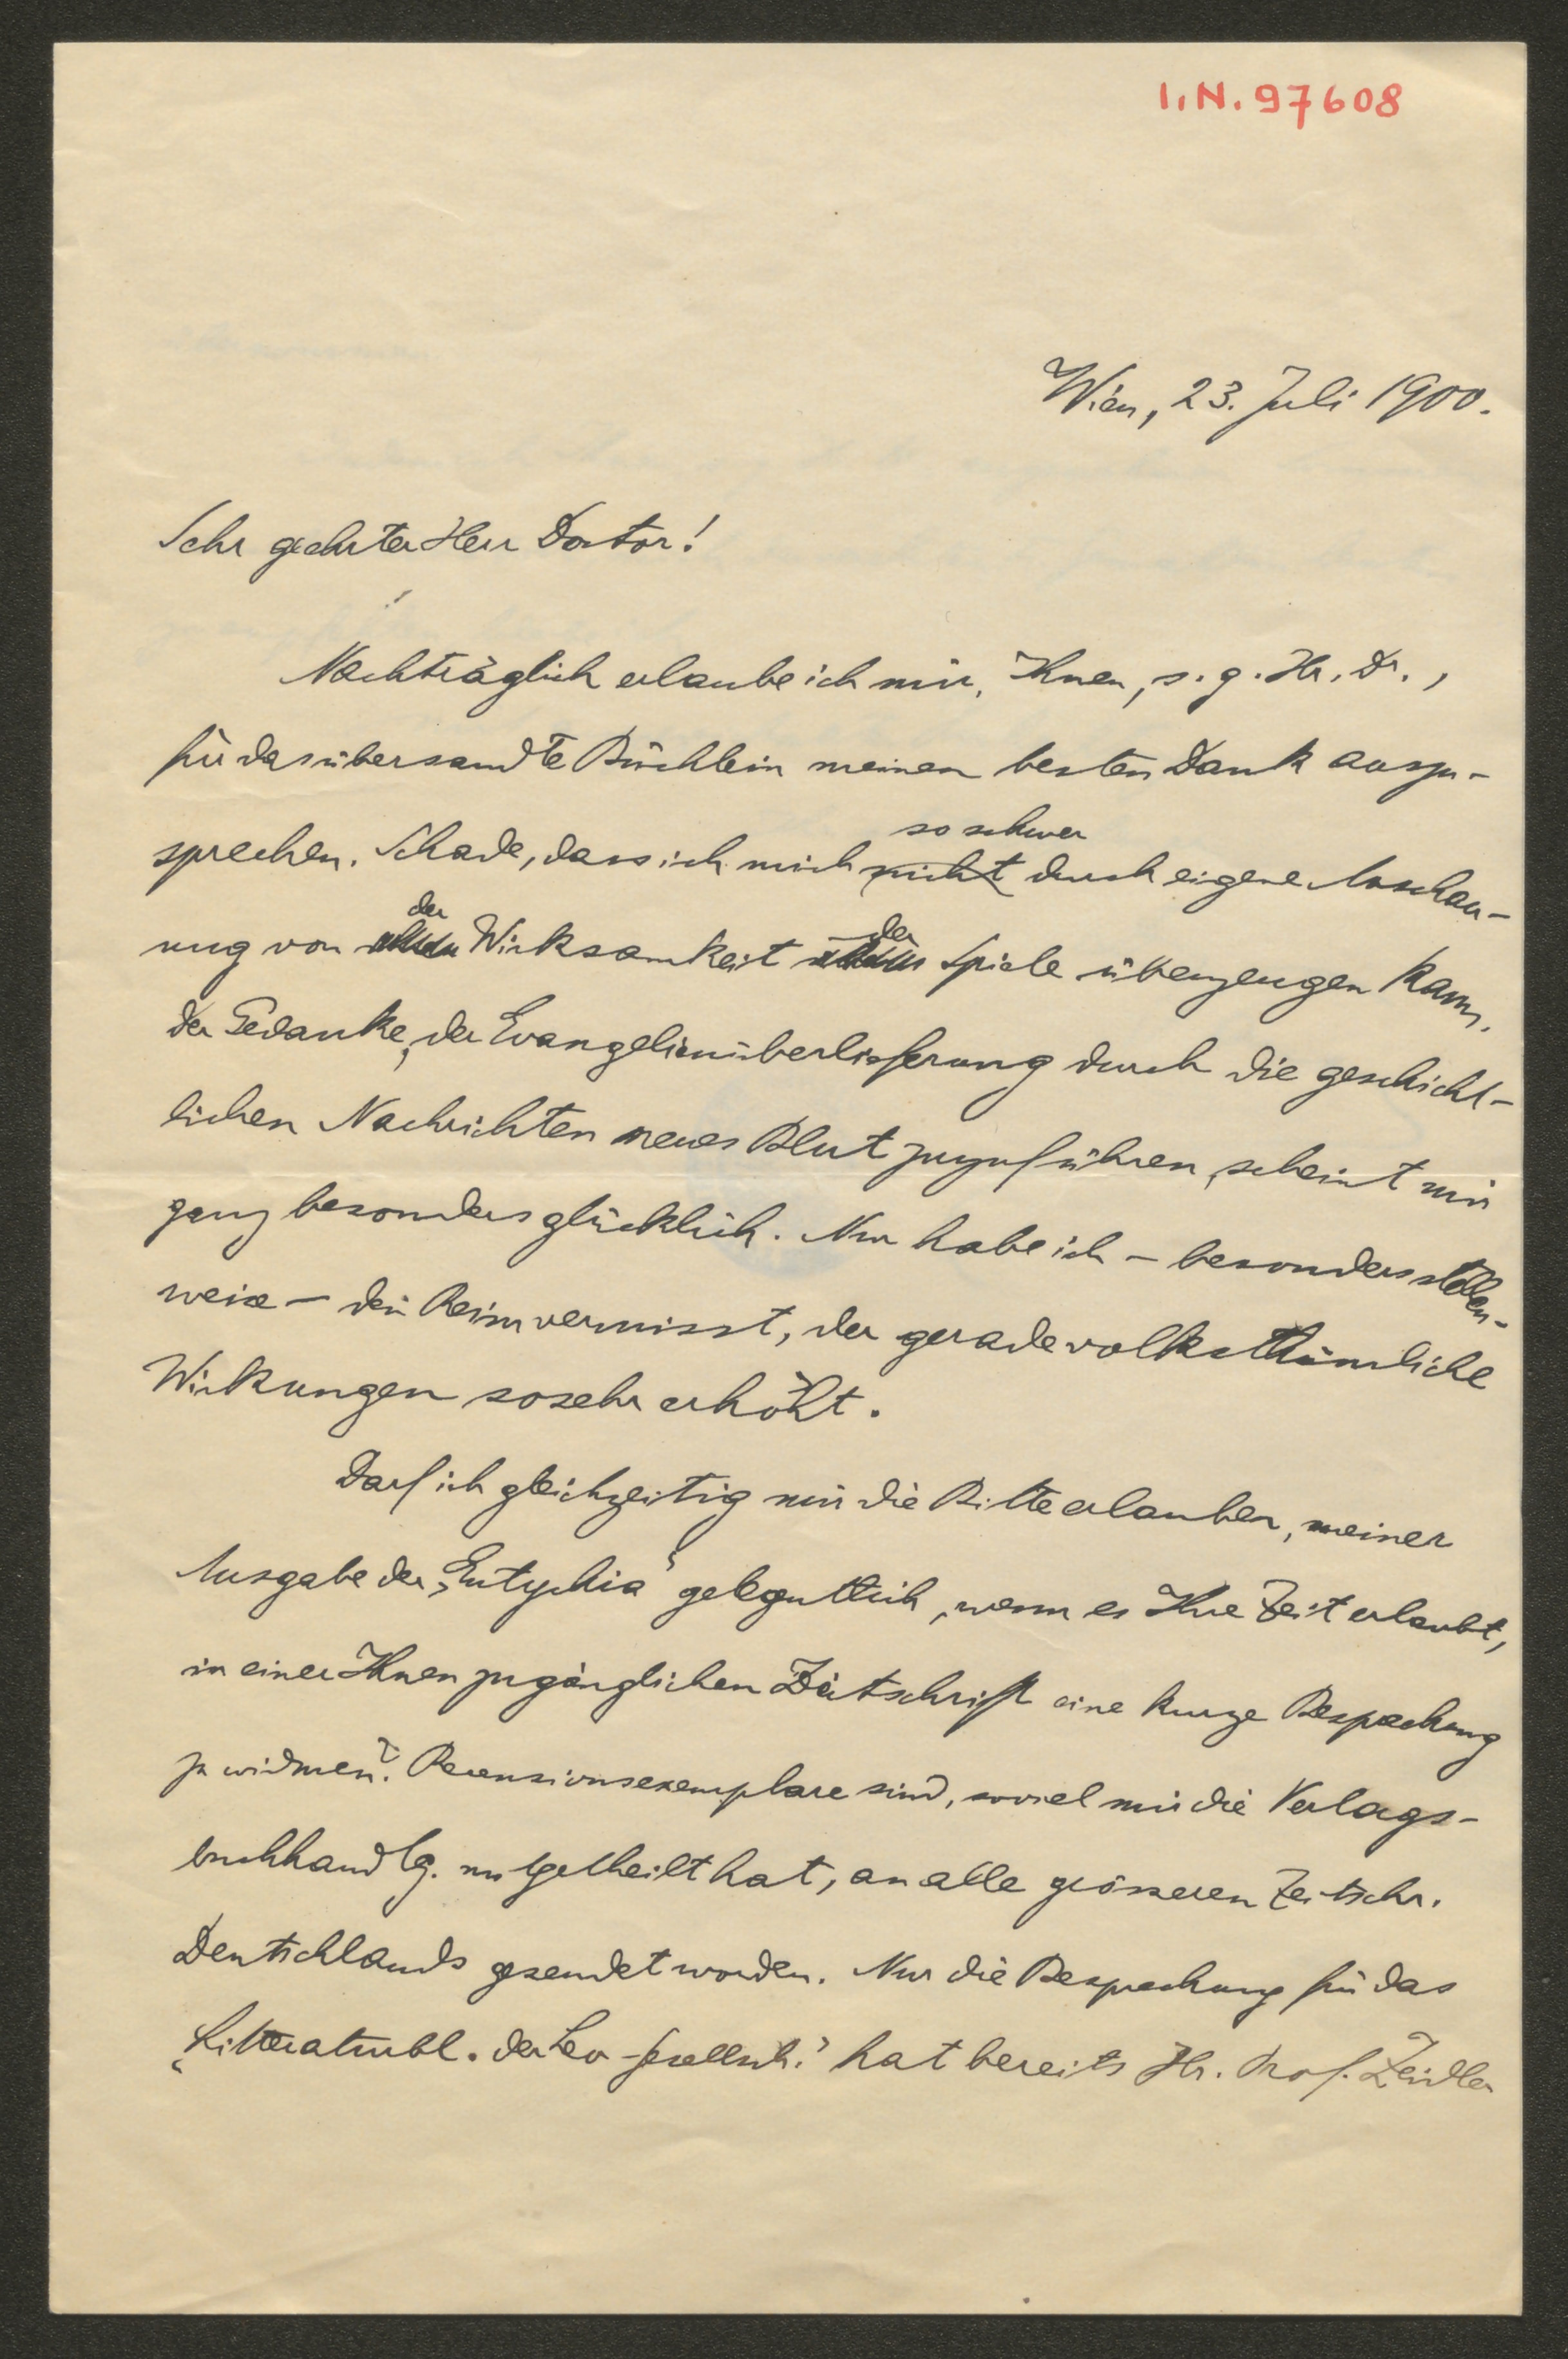 I.N. 97608
Wien, 23. Juli 1900.
Sehr geehrter Herr Doctor!
Nachträglich erlaube ich mir, Ihnen, s. g. Hr. Dr.,
für das übersandte Büchlein meinen besten Dank auszu-
sprechen. Schade, dass ich mich nicht so schwer durch eigene Anschau-
ung von der Wirksamkeit der Spiele überzeugen kann.
Der Gedanke, der Evangelienüberlieferung durch die geschicht-
lichen Nachrichten neues Blut zuzuführen, scheint mir
ganz besonders glücklich. Nur habe ich – besonders stellen-
weise – den Reim vermisst, der gerade volksthümliche
Wirkungen so sehr erhöht.
Darf ich gleichzeitig mir die Bitte erlauben, meiner
Ausgabe der „Eutychia" gelegentlich, wenn es Ihre Zeit erlaubt,
in einer Ihnen zugänglichen Zeitschrift eine kurze Besprechung
zu widmen? Recensionsexemplare sind, soviel mir die Verlags-
buchhandlg. mitgetheilt hat, an alle grösseren Zeitschr.
Deutschlands gesendet worden. Nur die Besprechung für das
„Litteraturbl. der Leo-Gesellsch." hat bereits Hr. Prof. Zeidler